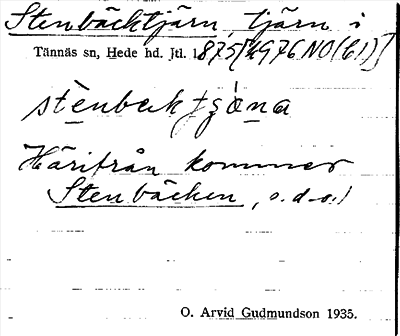 Stenbäcktjärn, tjärn i
Tännäs sn, Hede hd. Jtl. 1875[4976 NO(61)]
Härifrån kommer
Stenbäcken, s.d.o.)
O. Arvid Gudmundson 1935.